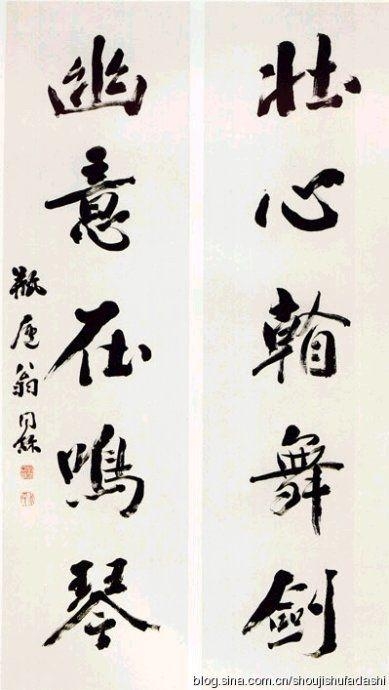 壯心舞劍
幽意在鳴琴
瓶廬翁同龢
blog.sina.com.cn/shoujishufadashi